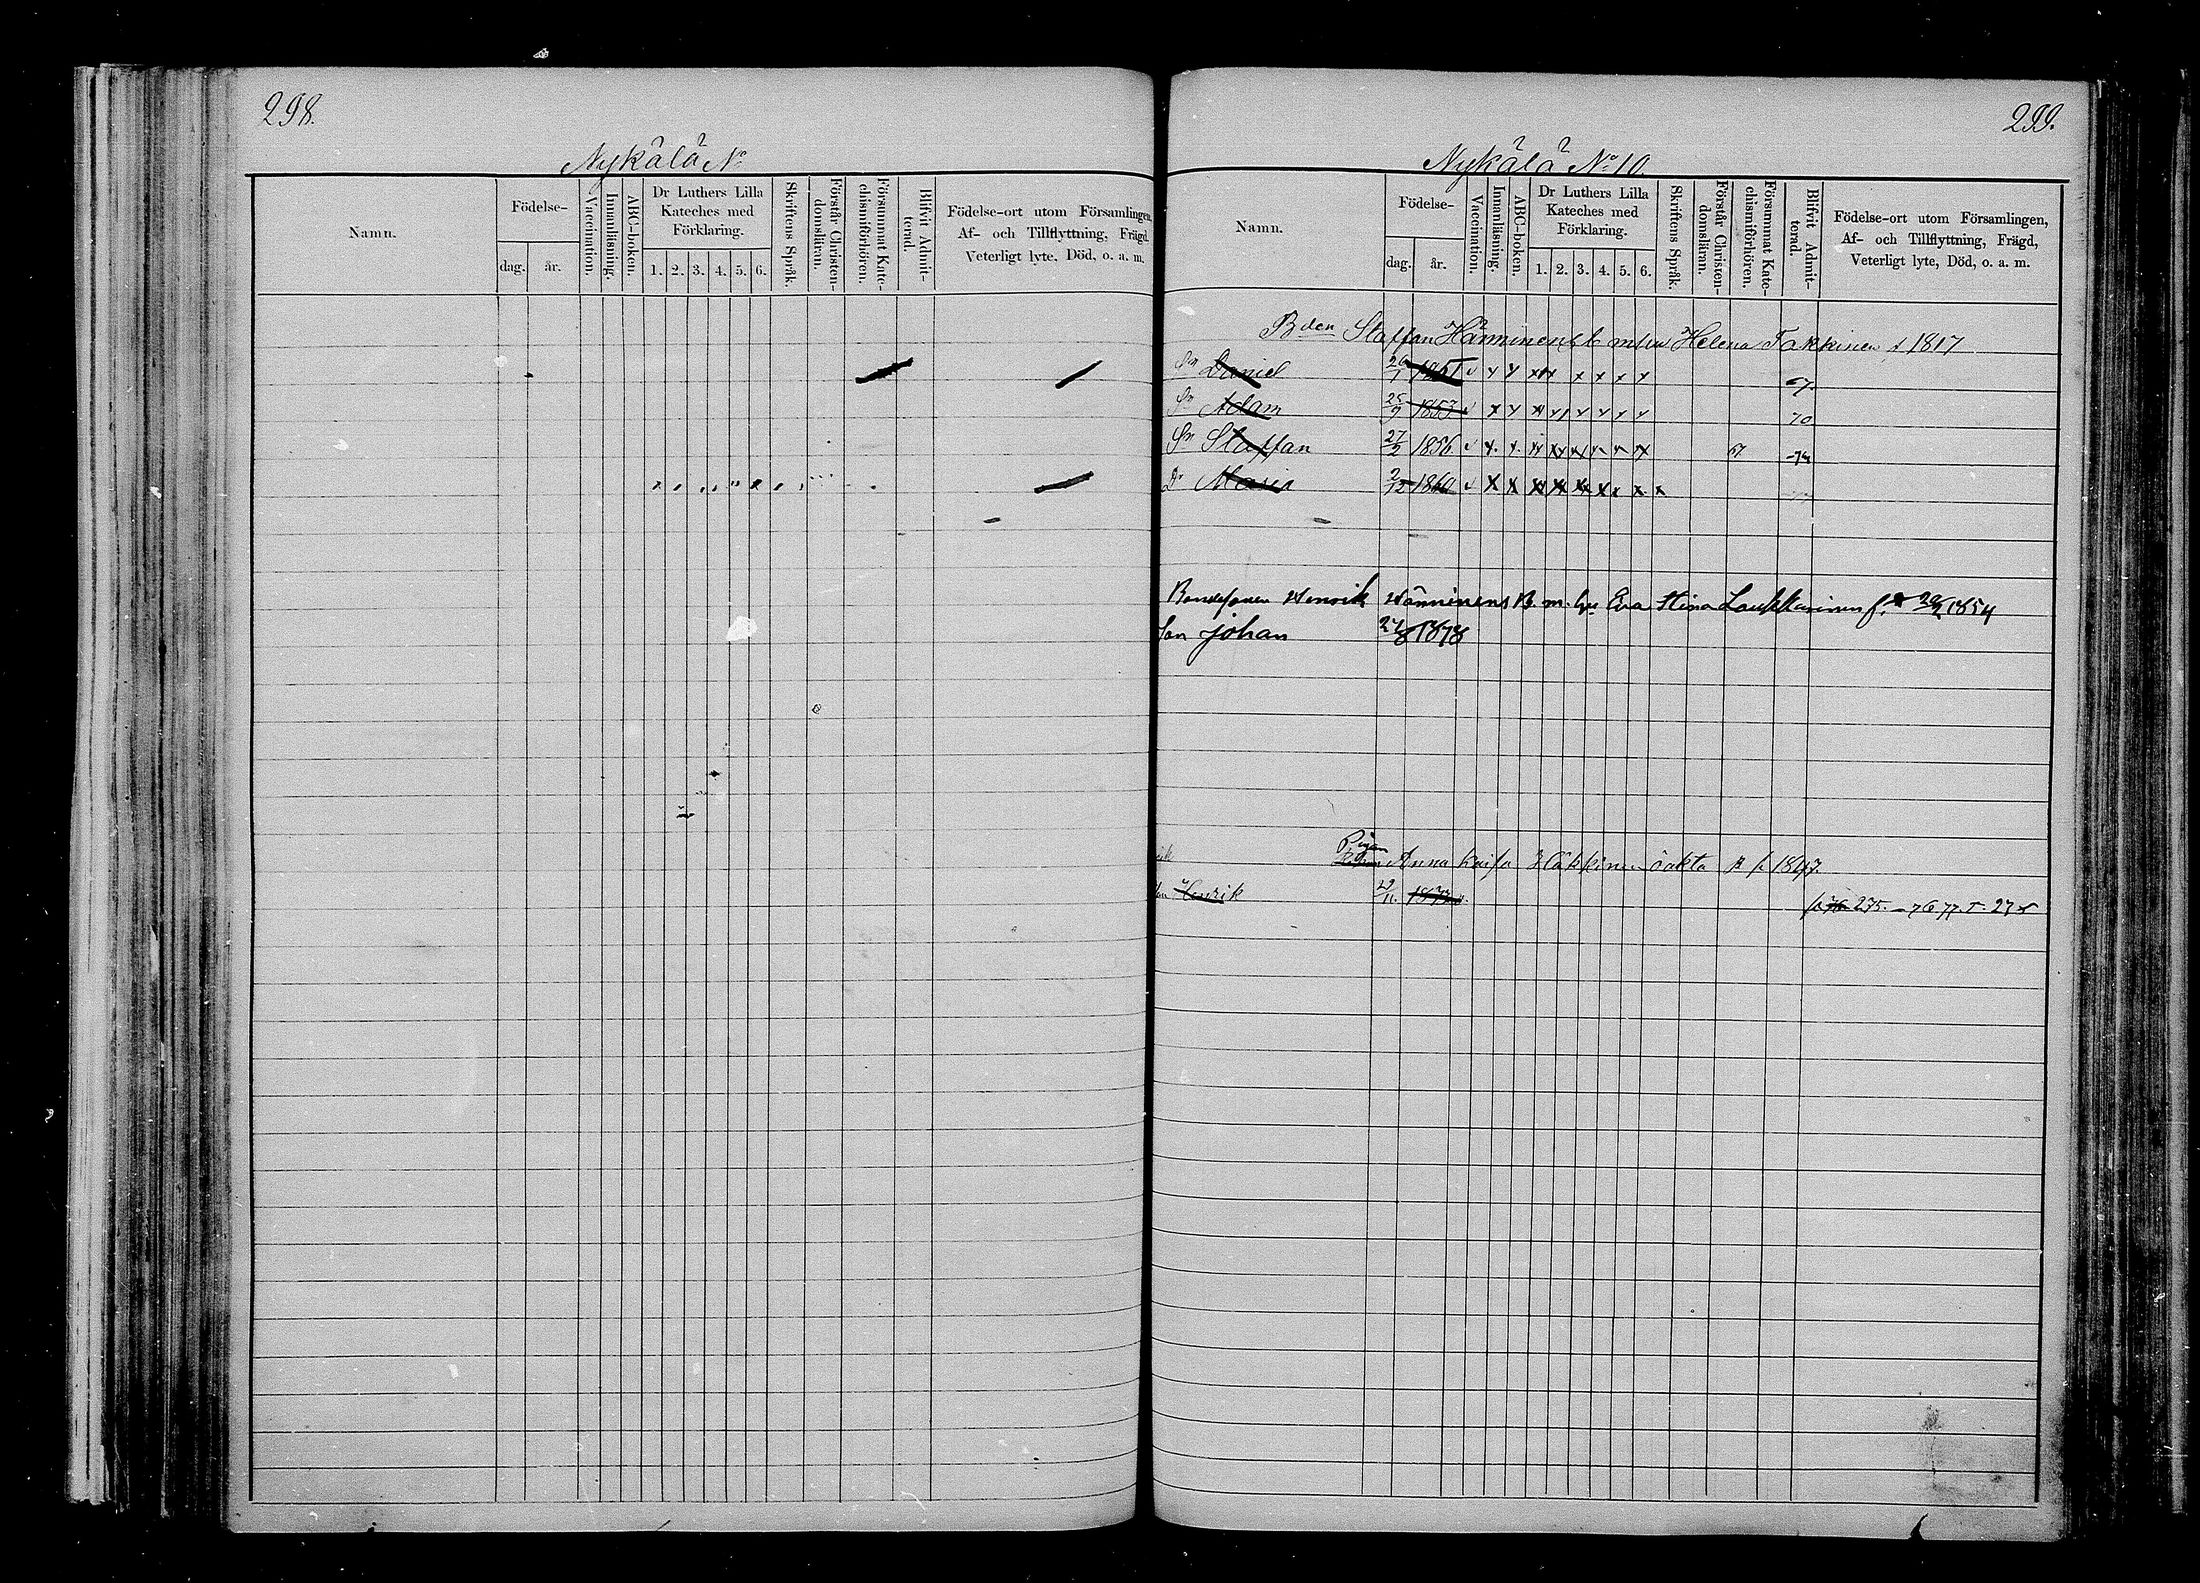 298.
Nykälä No
Namn.
Födelse-
dag. år.
Vaccination.
Innanläsning.
ABC-boken.
Dr Luthers Lilla
Kateches med
Förklaring.
1. 2. 3. 4. 5. 6.
Skriftens Språk.
Förstår Christen-
domsläran.
Försummat Kate-
chismiförhören.
Blifvit Admit-
terad.
Födelse-ort utom Församlingen,
Af- och Tillflyttning, Frägd,
Veterligt lyte, Död, o. a. m.
299.
Nykälä No 10.
Namn.
Födelse-
dag. år.
Vaccination.
Innanläsning.
ABC-boken.
Dr Luthers Lilla
Kateches med
Förklaring.
1. 2. 3. 4. 5. 6.
Skriftens Språk.
Förstår Christen-
domsläran.
Försummat Kate-
chismiförhören.
Blifvit Admit-
terad.
Födelse-ort utom Församlingen,
Af- och Tillflyttning, Frägd,
Veterligt lyte, Död, o. a. m.
Bden Staffan Hänninens b m hu Helena Takkinen f 1817
Sn Daniel 26/1 1851 67
Sn Adam 25/9 1853 70
Sn Staffan 27/2 1856 67 -74
Dr Maria 2/12 1860
Bondesonen Henrik Hänninens B. m. hu Eva Stina Laukkarinen f. 1854
Son Johan 1878
Pigan Anna Kaisa Häkkinen oäkta B f 1847.
Henrik 29/11. 275. - 76 77. T. 275